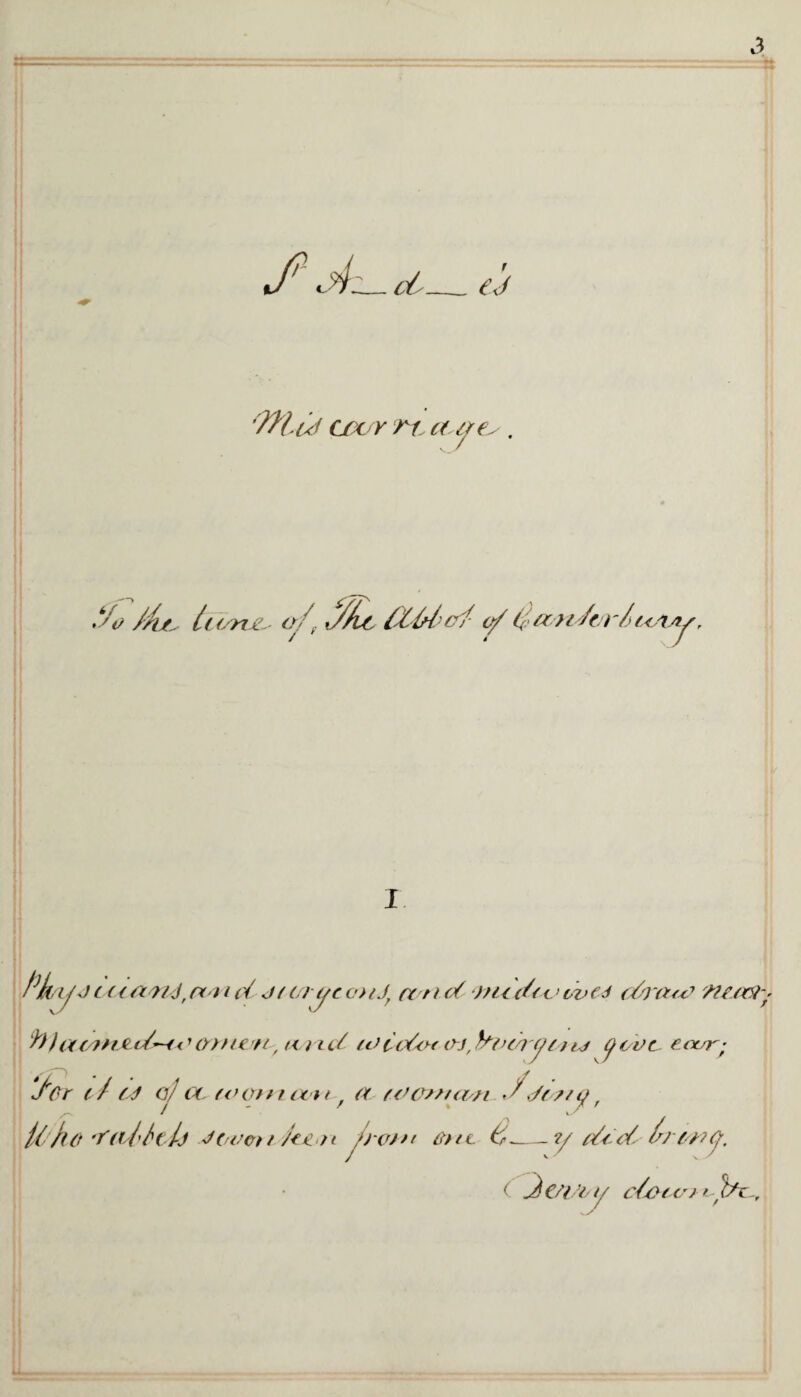 3
St A—d—és
Miscarriage.
To the tune of, The Abbot of Canterbury.
I
Physicians, and surgeons, and midwives draw near;
Maimed-women, and widows, Virgins give ear;
For it is of a woman, a woman I sing,
Who rabbits seventeen from out C—y did bring.
(Derry down &c.,